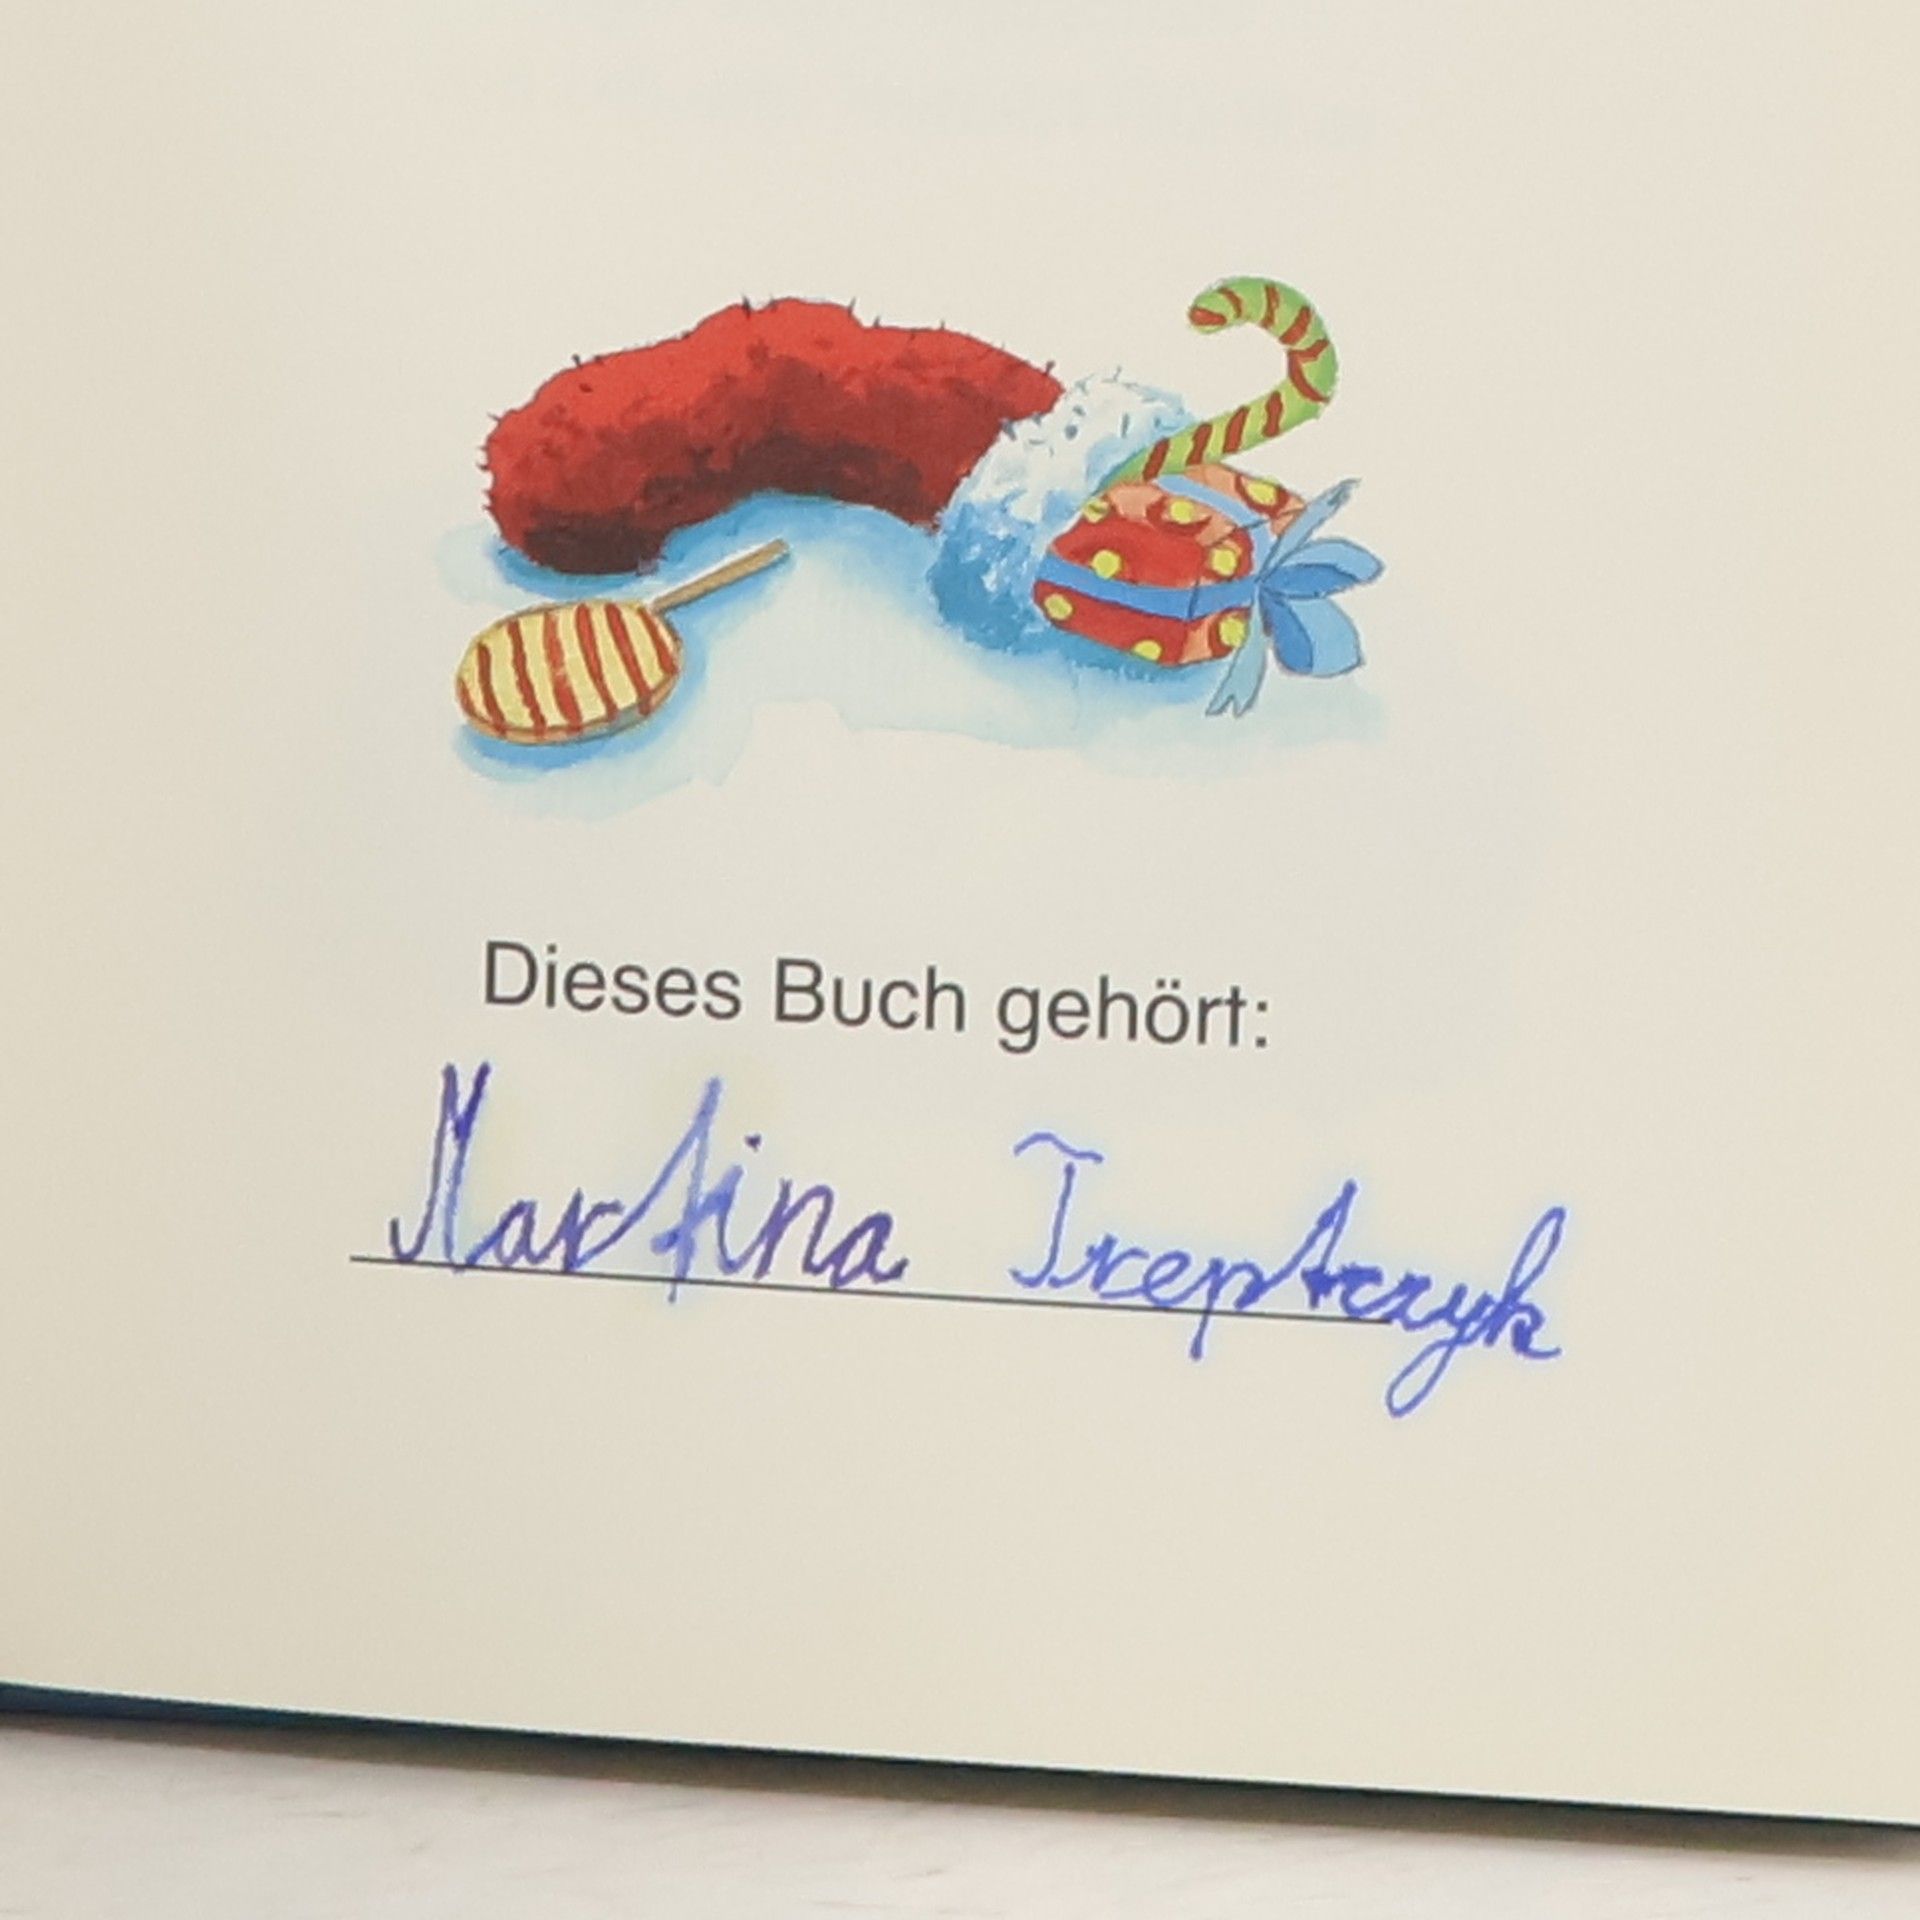 Dieses Buch gehört:
Martina Treptczyk